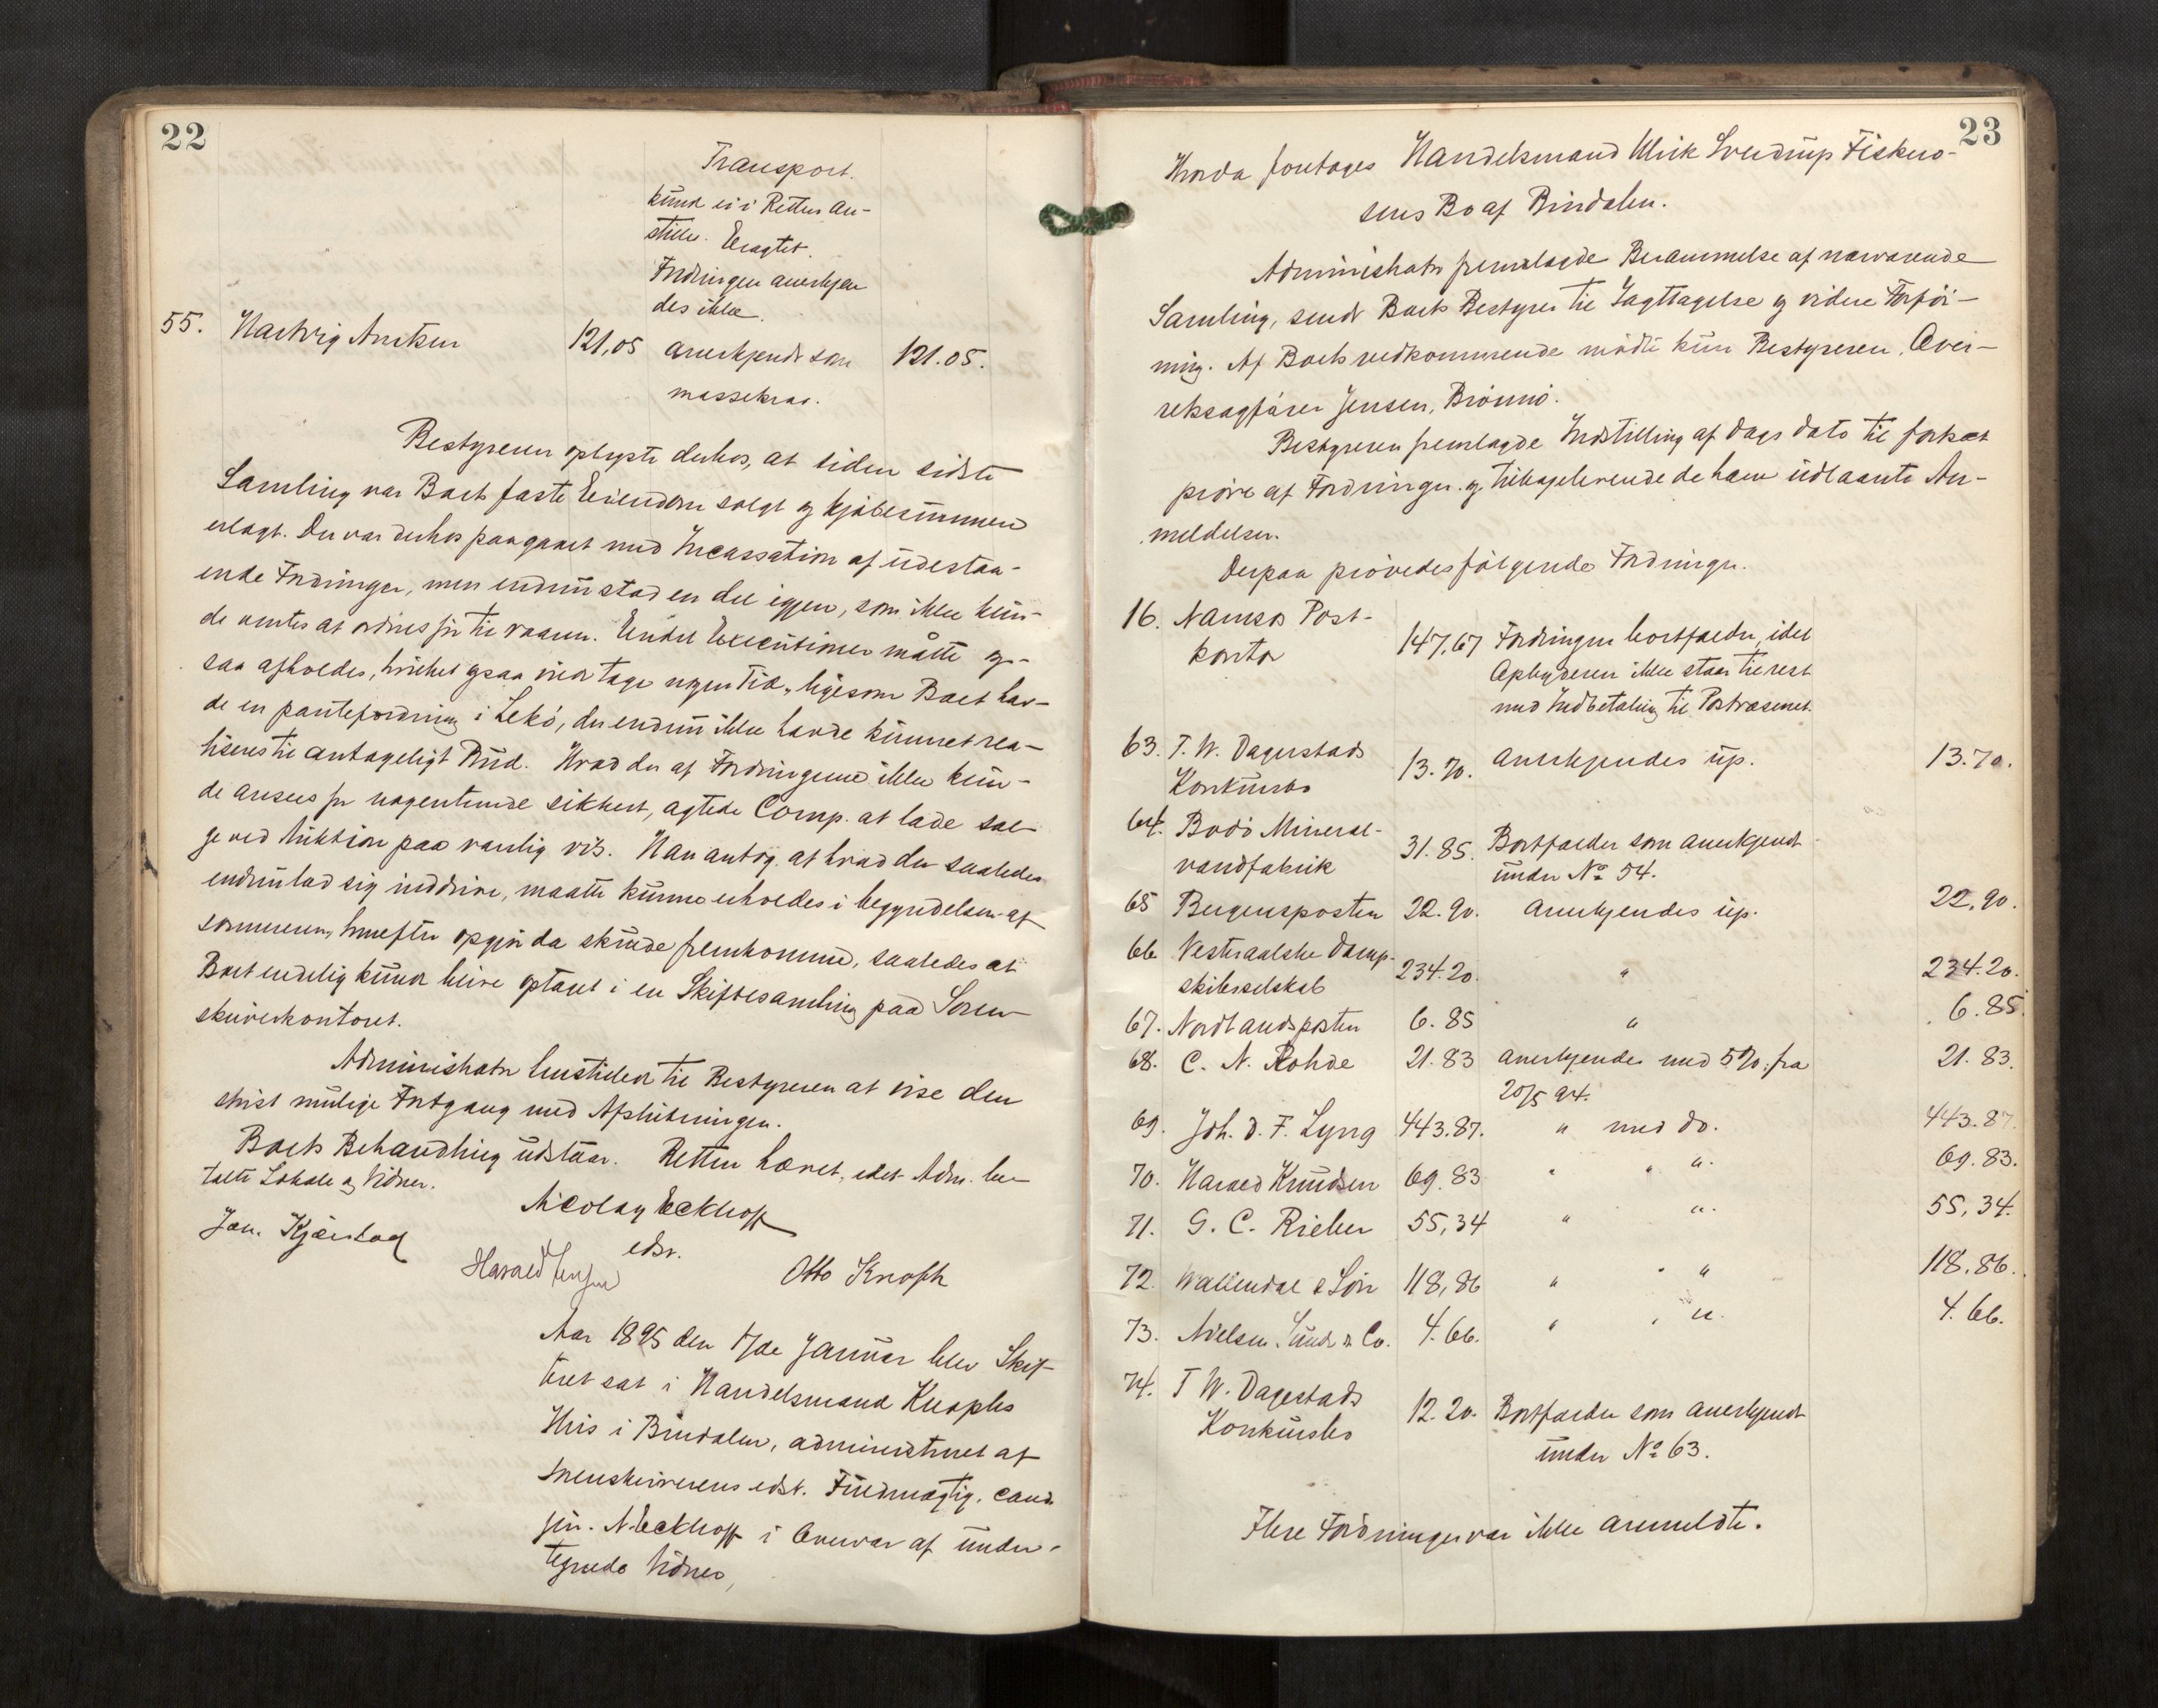 22
Transport.
kund ei i Retten an-
stilles. Eragtet.
Fordringen anerkjen
des ikke.
55. Hartvig Arntsen 121,05 anerkjendt som 121.05.
massekrav.
Bestyreren oplyste derhos, at siden sidste
Samling var Boets faste Eiendom solgt og kjøbesummen
erlagt. Der var derhos paagaaet med Incassation af udestaa-
ende Fordringer, men endnu stod en del igjen, som ikke kun-
de ventes at ordnes før til vaaren. Endel Executioner måtte og-
saa afholdes, hvilket ogsaa vil tage nogen Tid, ligesom Boet hav-
de en pantefordring i Lekø, der endnu ikke havde kunnet rea-
liseres til antageligt Bud. Hvad der af Fordringerne ikke kun-
de ansees for nogenlunde sikkert, agtede Comp. at lade sæl-
ge ved Auktion paa vanlig vis. Han antog, at hvad der saaledes
endnu lod sig inddrive, maatte kunne erholdes i begyndelsen af
sommeren, hvorefter opgjør da skulde fremkomme, saaledes at
Boet endelig kunde blive optaget i en Skiftesamling paa Soren-
skriverkontoret.
Administrator henstillede til Bestyreren at vise den
størst mulige Fortgang med Afslutningen.
Boets Behandling udstaar. Retten hævet, idet Adm. be-
talte Lokale og Vidner.
Nicolay Eckhoff
edsv.
Jon. Kjærstad
Harald Jensen
Otto Knoph
Aar 1895 den 17de Januar blev Skif-
tret sat i Handelsmand Knophs
Hus i Bindalen, administreret af
Sorenskriverens edsv. Fuldmægtig, cand.
jur. N. Eckhoff i Overvær af under-
tegnede Vidner,
23
Hvorda foretoges Handelsmand Ulrik Sverdrup Fiskero-
sens Bo af Bindalen.
Administrator fremlagde Berammelse af nærværende
Samling, sendt Boets Bestyrer til Iagttagelse og videre Forføi-
ning. Af Boets vedkommende mødte kun Bestyreren, Over-
retssagfører Jensen, Brønnø.
Bestyreren fremlagde Indstilling af Dags Dato til fortsat
prøve af Fordringer og tilbageleverede de ham udlaante An-
meldelser.
Derpaa prøvedes følgende Fordringer.
16. Namsos Post-
kontor 147,67 Fordringen bortfalder, idet
Opbyderen ikke staar til rest
med Indbetaling til Postvæsenet.
63. T. W. Dagestads
Konkursbo 13.70. anerkjendes up. 13.70.
64. Bodø Mineral-
vandfabrik 31.85. Bortfalder som anerkjendt
under No 54.
65 Bergensposten 22.90. anerkjendes up. 22,90.
66 Vesteraalske Damp-
skibsselskab 234.20. " 234.20.
67. Nordlandsposten 6.85 " 6.85.
68. C. N. Rohde 21.83 anerkjendes med 5%. fra 21.83.
20/5 94.
69. Joh. D. F. Lyng 443.87. " med do. 443.87.
70. Harald Knudsen 69.83 " " ". 69.83.
71. G. C. Rieber 55,34 " ". 55,34.
72. Wallendal & Søn 118,86 " " " 118.86.
73. Nielsen, Lund & Co. 4.66. " " ". 4.66.
74. T W. Dagestads
Konkursbo 12.20. Bortfalder som anerkjendt
under No 63.
Flere Fordringer var ikke anmeldte.